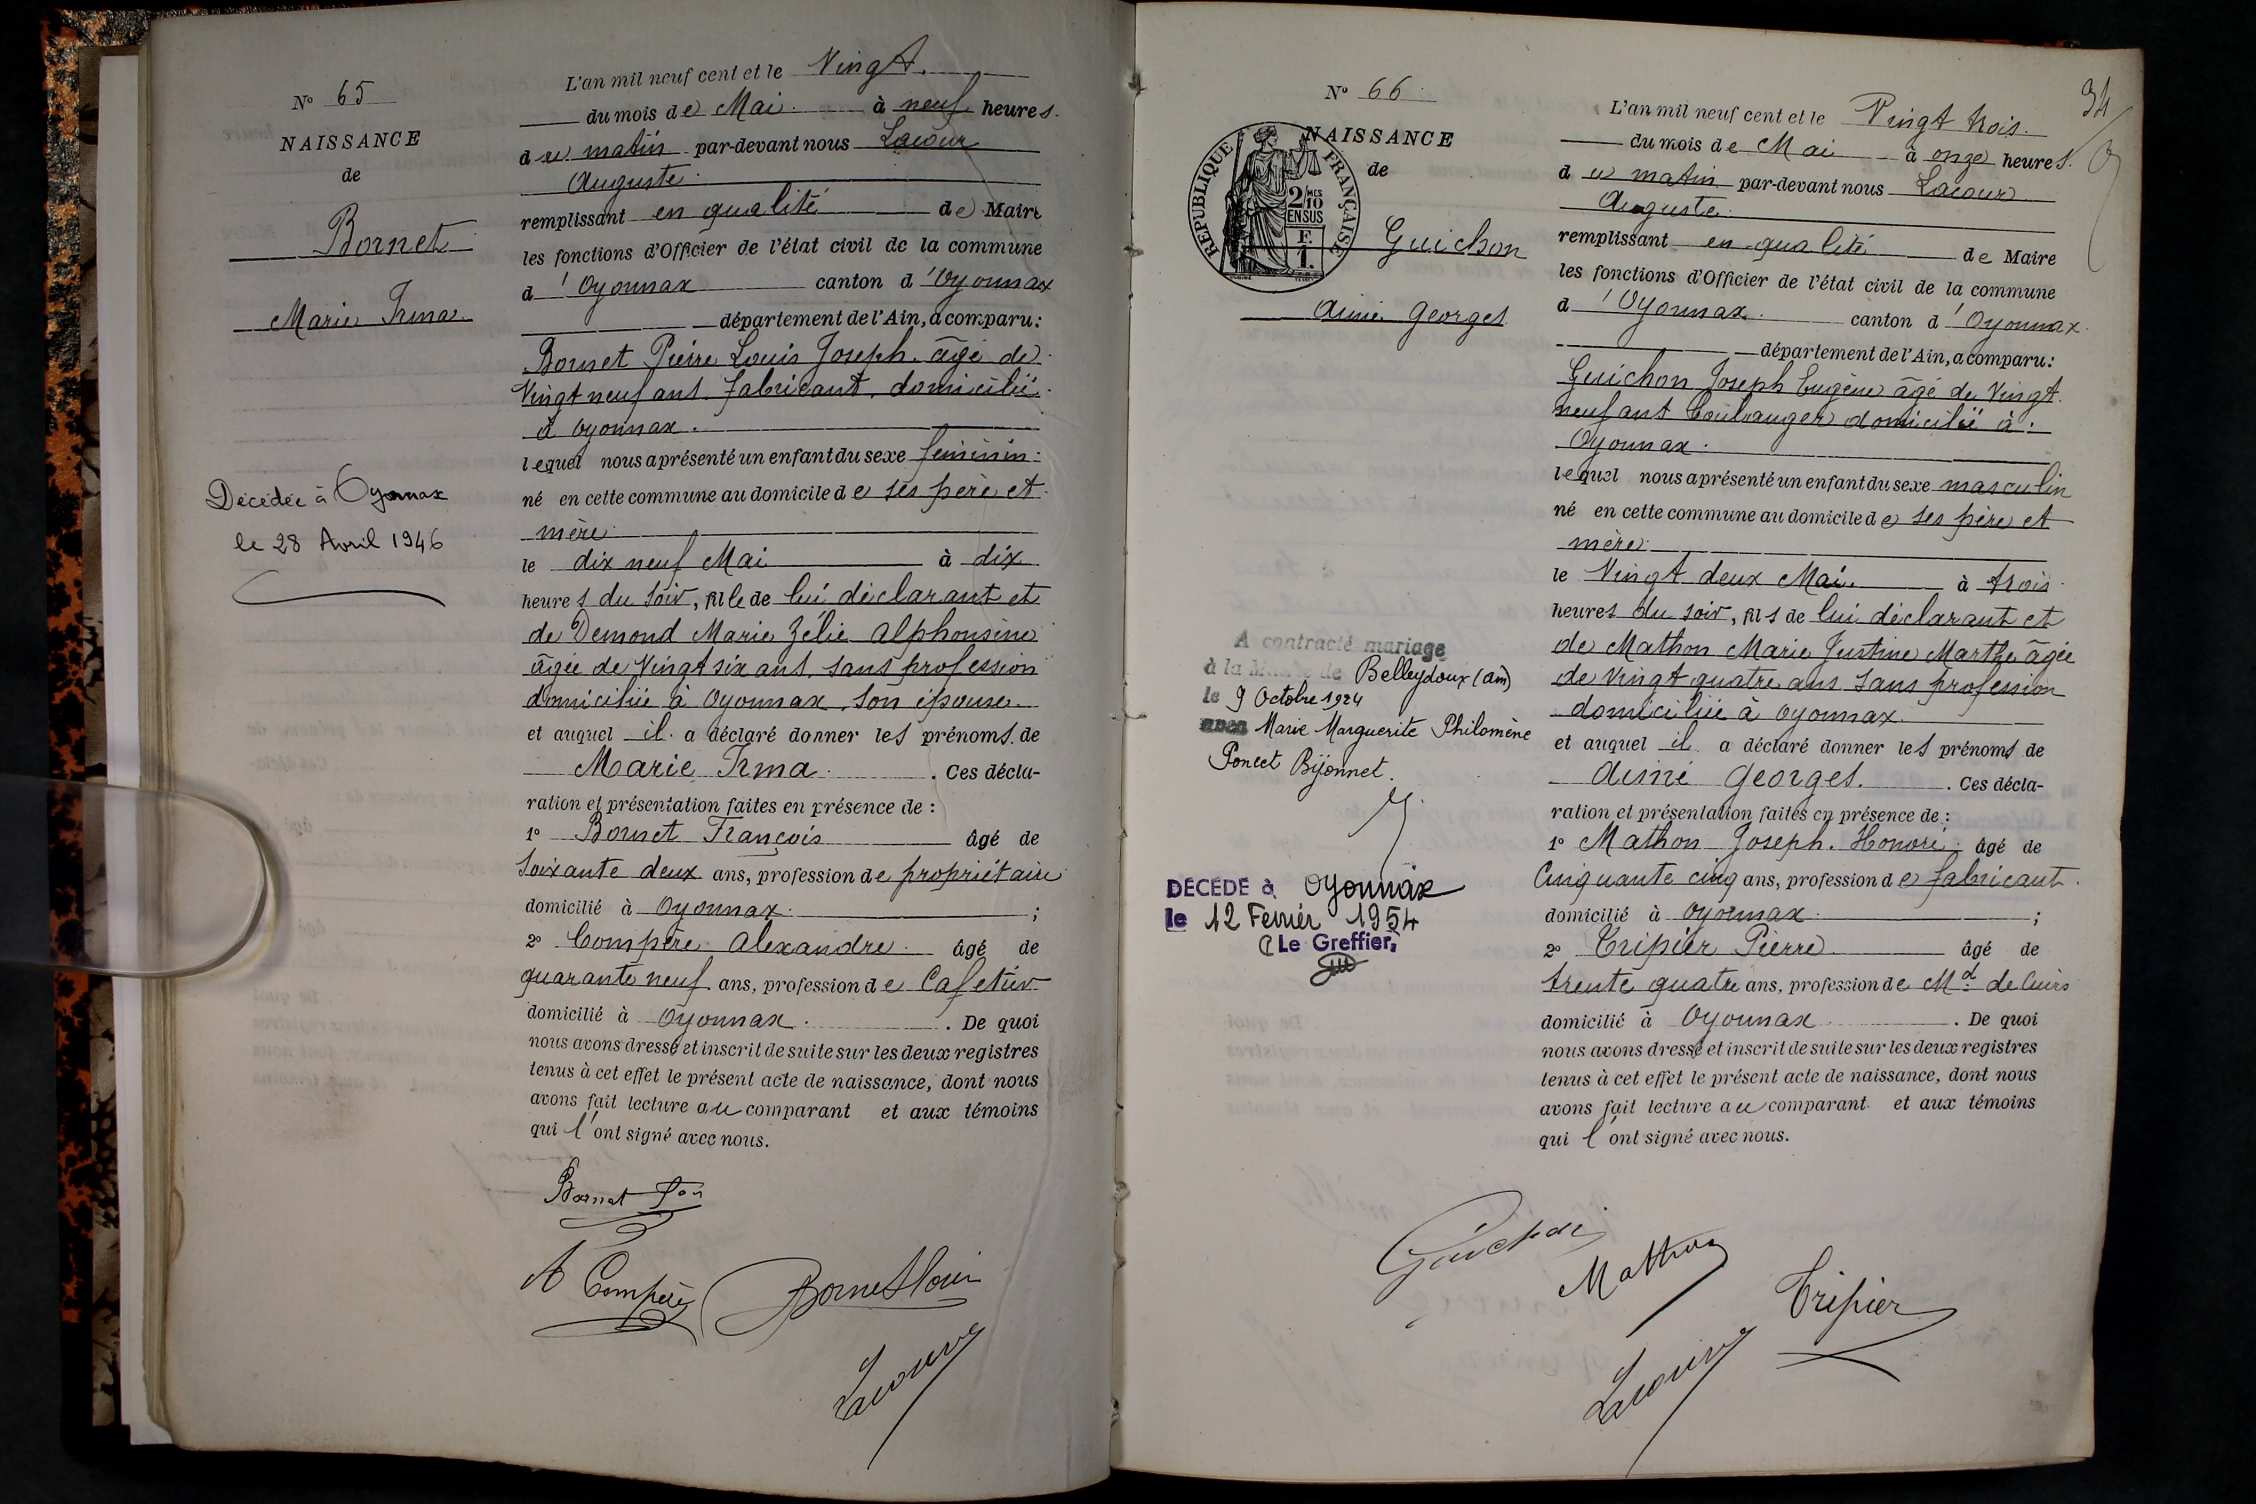 N° 65
NAISSANCE
de
Bornet
Marie Irma
Décédée à Oyonnax
le 28 Avril 1946
L'an mil neuf cent et le Vingt.
du mois de Mai à neuf heures.
du matin par-devant nous Lacour
Auguste.
remplissant en qualité de Maire
les fonctions d'Officier de l'état civil de la commune
d'Oyonnax canton d'Oyonnax
département de l'Ain, a comparu:
Bornet Pierre Louis Joseph. âgé de
Vingt neuf ans. fabricant. domicilié
à Oyonnax.
lequel nous a présenté un enfant du sexe féminin.
né en cette commune au domicile de ses père et
mère
le dix neuf Mai à dix
heures du soir, fille de lui déclarant et
de Demond Marie Zélie Alphonsine
âgée de Vingt six ans. sans profession
domiciliée à Oyonnax. son épouse.
et auquel il a déclaré donner les prénoms de
Marie Irma. Ces décla-
ration et présentation faites en présence de :
1° Bornet François âgé de
soixante deux ans, profession de propriétaire
domicilié à Oyonnax ;
2° Compère Alexandre. âgé de
quarante neuf. ans, profession de Cafetier
domicilié à Oyonnax. De quoi
nous avons dressé et inscrit de suite sur les deux registres
tenus à cet effet le présent acte de naissance, dont nous
avons fait lecture au comparant et aux témoins
qui l'ont signé avec nous.
Bornet Fois
A Compère
Bornet Louis
Lacour
34
N° 66
NAISSANCE
de
RÉPUBLIQUE FRANÇAISE
2/10 MES
EN SUS
F.
1.
Guichon
Aimé Georges
A contracté mariage
à la Mairie de Belleydoux (Ain)
le 9 Octobre 1924
avec Marie Marguerite Philomène
Poncet Bijonnet.
DÉCÉDÉ à Oyonnax
le 12 Février 1954
Le Greffier,
L'an mil neuf cent et le Vingt trois.
du mois de Mai à onze heures.
du matin par-devant nous Lacour
Auguste.
remplissant en qualité de Maire
les fonctions d'Officier de l'état civil de la commune
d'Oyonnax. canton d'Oyonnax.
département de l'Ain, a comparu:
Guichon Joseph Eugène âgé de Vingt
neuf ans boulanger domicilié à
Oyonnax.
lequel nous a présenté un enfant du sexe masculin
né en cette commune au domicile de ses père et
mère
le Vingt deux Mai. à trois
heures du soir, fils de lui déclarant et
de Mathon Marie Justine Marthe âgée
de Vingt quatre ans sans profession
domiciliée à Oyonnax.
et auquel il a déclaré donner les prénoms de
Aimé Georges. Ces décla-
ration et présentation faites en présence de :
1° Mathon Joseph. Honoré âgé de
Cinquante cinq ans, profession de fabricant.
domicilié à Oyonnax ;
2° Tripier Pierre âgé de
trente quatre ans, profession de Md de Cuirs
domicilié à Oyonnax. De quoi
nous avons dressé et inscrit de suite sur les deux registres
tenus à cet effet le présent acte de naissance, dont nous
avons fait lecture au comparant et aux témoins
qui l'ont signé avec nous.
Guichon
Mathon
Tripier
Lacour